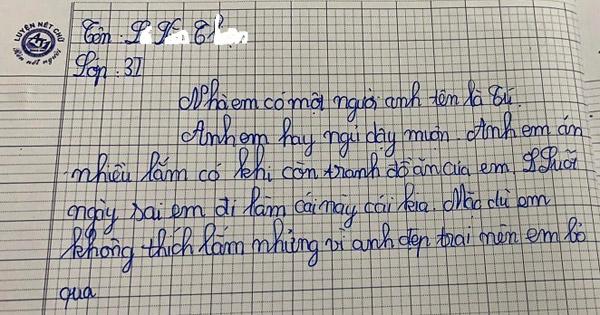 LUYỆN NÉT CHỮ
Rèn nết người
Tên:
Lớp: 3I
Nhà em có một người anh tên là Tú.
Anh em hay ngủ dậy muộn. Anh em ăn
nhiều lắm có khi còn tranh đồ ăn của em. Suốt
ngày sai em đi làm cái này cái kia. Mặc dù em
không thích lắm nhưng vì anh đẹp trai nên em bỏ
qua